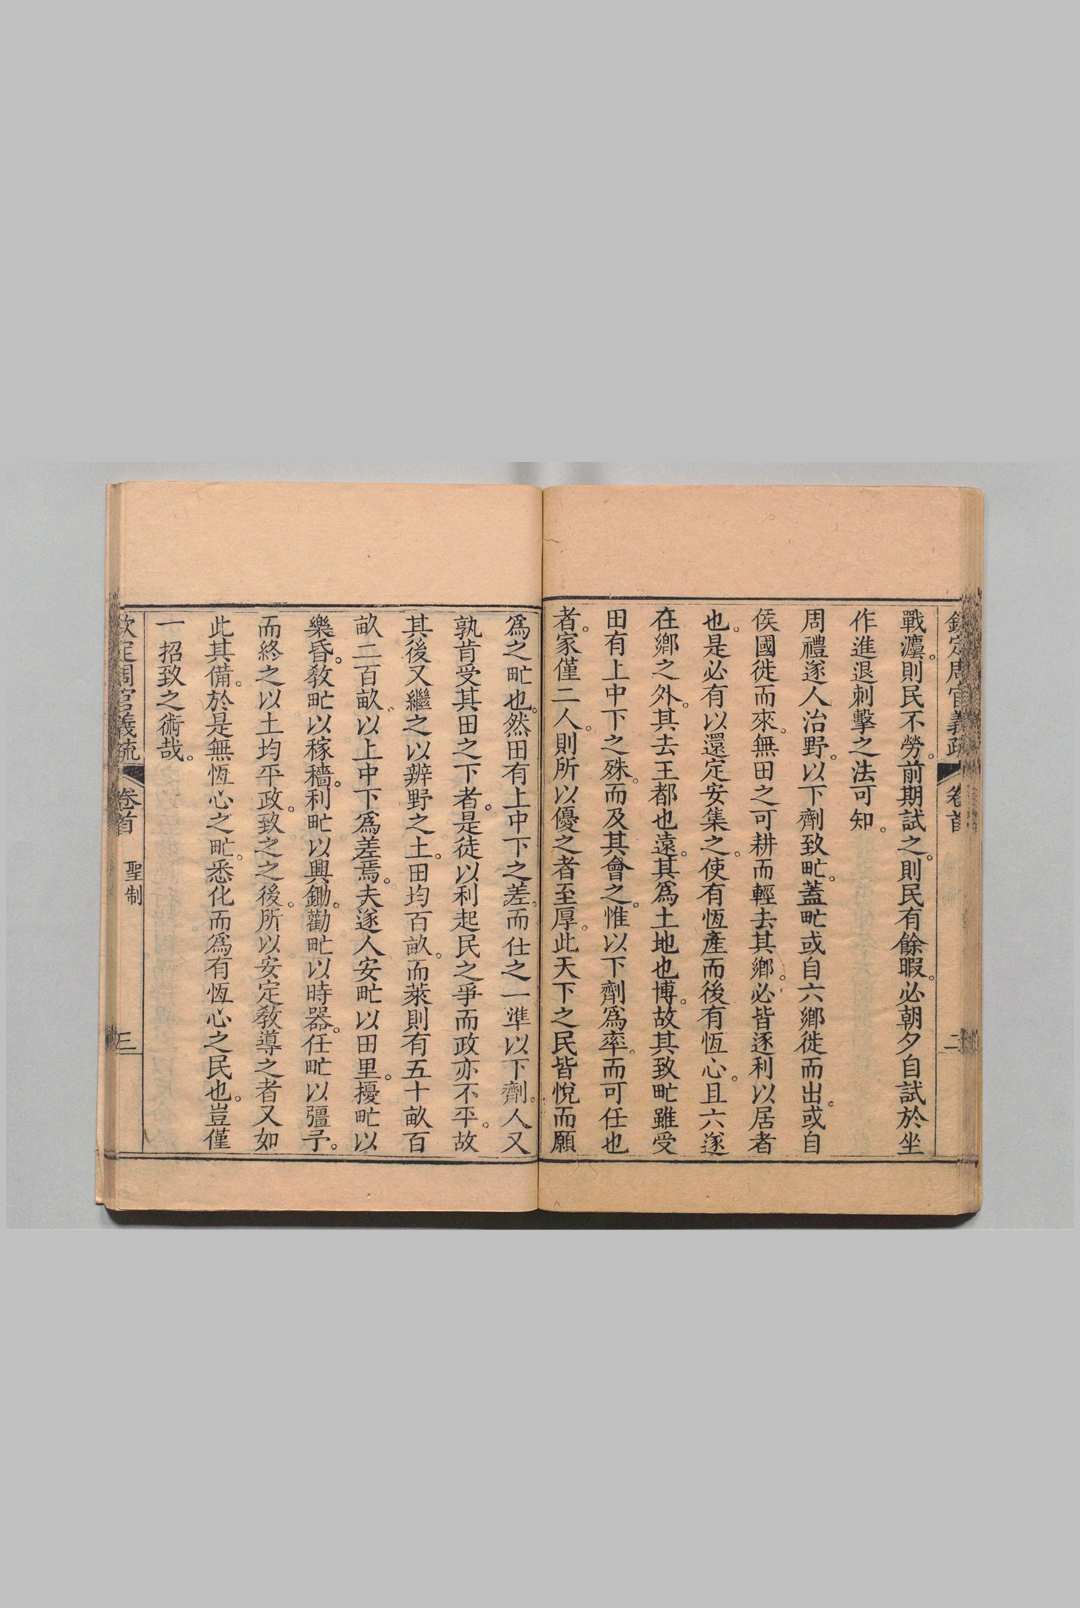 欽定周官義疏 卷首 二
戰瀌則民不勞。前期試之。則民有餘暇。必朝夕自試於坐
作進退刺擊之法可知。
周禮遂人治野。以下劑致甿。蓋甿或自六鄉徙而出。或自
侯國徙而來。無田之可耕而輕去其鄉。必皆逐利以居者
也。是必有以還定安集之。使有恆產而後有恆心。且六遂
在鄉之外。其去王都也遠。其爲土地也博。故其致甿雖受
田有上中下之殊。而及其會之。惟以下劑爲率。而可任也
者。家僅二人。則所以優之者至厚。此天下之民皆悅而願
爲之甿也。然田有上中下之差。而仕之一準以下劑。人又
孰肯受其田之下者。是徒以利起民之爭而政亦不平。故
其後又繼之以辨野之土。田均百畝。而萊則有五十畝百
畝二百畝。以上中下爲差焉。夫遂人安甿以田里。擾甿以
樂昏。敎甿以稼穡。利甿以興鋤。勸甿以時器。任甿以彊予。
而終之以土均平政。致之之後。所以安定敎導之者又如
此其備。於是無恆心之甿。悉化而爲有恆心之民也。豈僅
一招致之術哉。
欽定周官義疏 卷首 聖制 三